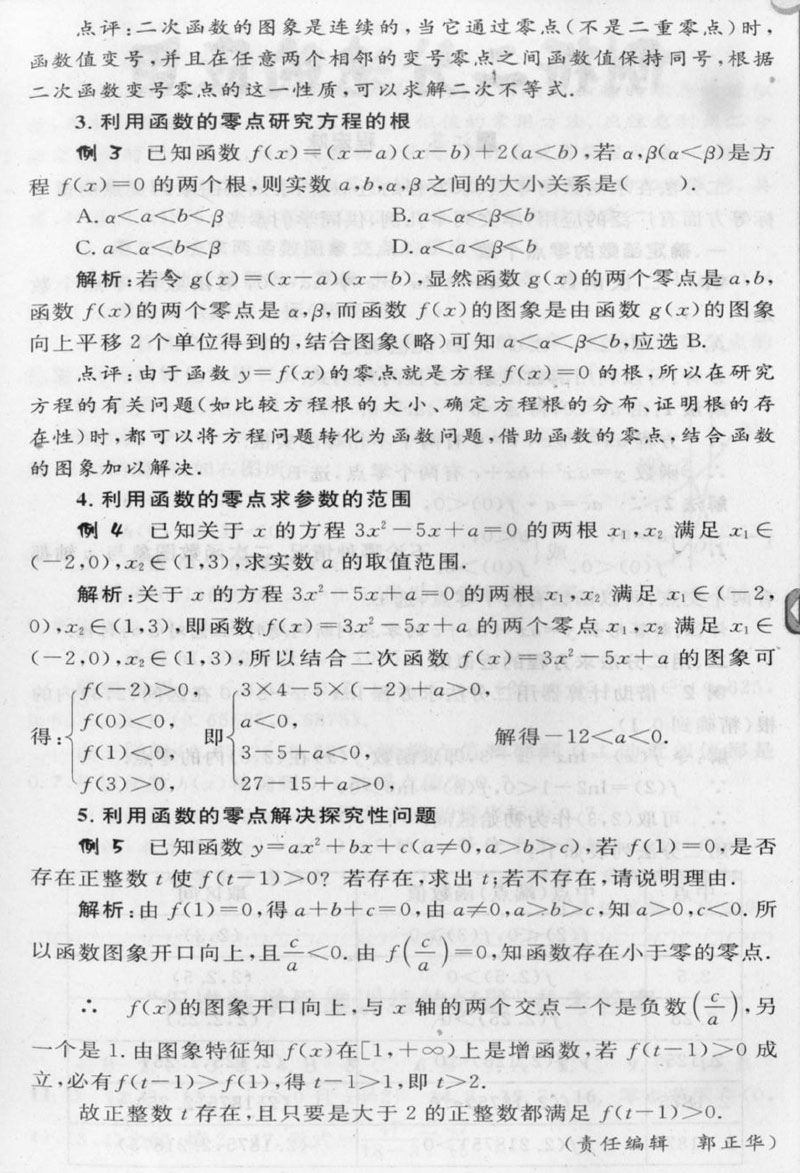 点评:二次函数的图象是连续的,当它通过零点(不是二重零点)时,
函数值变号,并且在任意两个相邻的变号零点之间函数值保持同号,根据
二次函数变号零点的这一性质,可以求解二次不等式.
3. 利用函数的零点研究方程的根
例 3 已知函数 f(x)=(x-a)(x-b)+2(a<b),若 α,β(α<β)是方
程 f(x)=0 的两个根,则实数 a,b,α,β 之间的大小关系是( ).
A. α<a<b<β B. a<α<β<b
C. a<α<b<β D. α<a<β<b
解析:若令 g(x)=(x-a)(x-b),显然函数 g(x)的两个零点是 a,b,
函数 f(x)的两个零点是 α,β,而函数 f(x)的图象是由函数 g(x)的图象
向上平移 2 个单位得到的,结合图象(略)可知 a<α<β<b,应选 B.
点评:由于函数 y=f(x)的零点就是方程 f(x)=0 的根,所以在研究
方程的有关问题(如比较方程根的大小、确定方程根的分布,证明根的存
在性)时,都可以将方程问题转化为函数问题,借助函数的零点,结合函数
的图象加以解决.
4. 利用函数的零点求参数的范围
例 4 已知关于 x 的方程 3x²-5x+a=0 的两根 x₁,x₂ 满足 x₁∈
(-2,0),x₂∈(1,3),求实数 a 的取值范围.
解析:关于 x 的方程 3x²-5x+a=0 的两根 x₁,x₂ 满足 x₁∈(-2,
0),x₂∈(1,3),即函数 f(x)=3x²-5x+a 的两个零点 x₁,x₂ 满足 x₁∈
(-2,0),x₂∈(1,3),所以结合二次函数 f(x)=3x²-5x+a 的图象可
f(-2)>0, 3×4-5×(-2)+a>0,
f(0)<0, a<0,
得: 即 解得-12<a<0.
f(1)<0, 3-5+a<0,
f(3)>0, 27-15+a>0,
5. 利用函数的零点解决探究性问题
例 5 已知函数 y=ax²+bx+c(a≠0,a>b>c),若 f(1)=0,是否
存在正整数 t 使 f(t-1)>0? 若存在,求出 t;若不存在,请说明理由.
解析:由 f(1)=0,得 a+b+c=0,由 a≠0,a>b>c,知 a>0,c<0. 所
以函数图象开口向上,且c/a<0. 由 f(c/a)=0,知函数存在小于零的零点.
∴ f(x)的图象开口向上,与 x 轴的两个交点一个是负数(c/a),另
一个是 1. 由图象特征知 f(x)在[1,+∞)上是增函数,若 f(t-1)>0 成
立,必有f(t-1)>f(1),得 t-1>1,即 t>2.
故正整数 t 存在,且只要是大于 2 的正整数都满足 f(t-1)>0.
(责任编辑 郭正华)